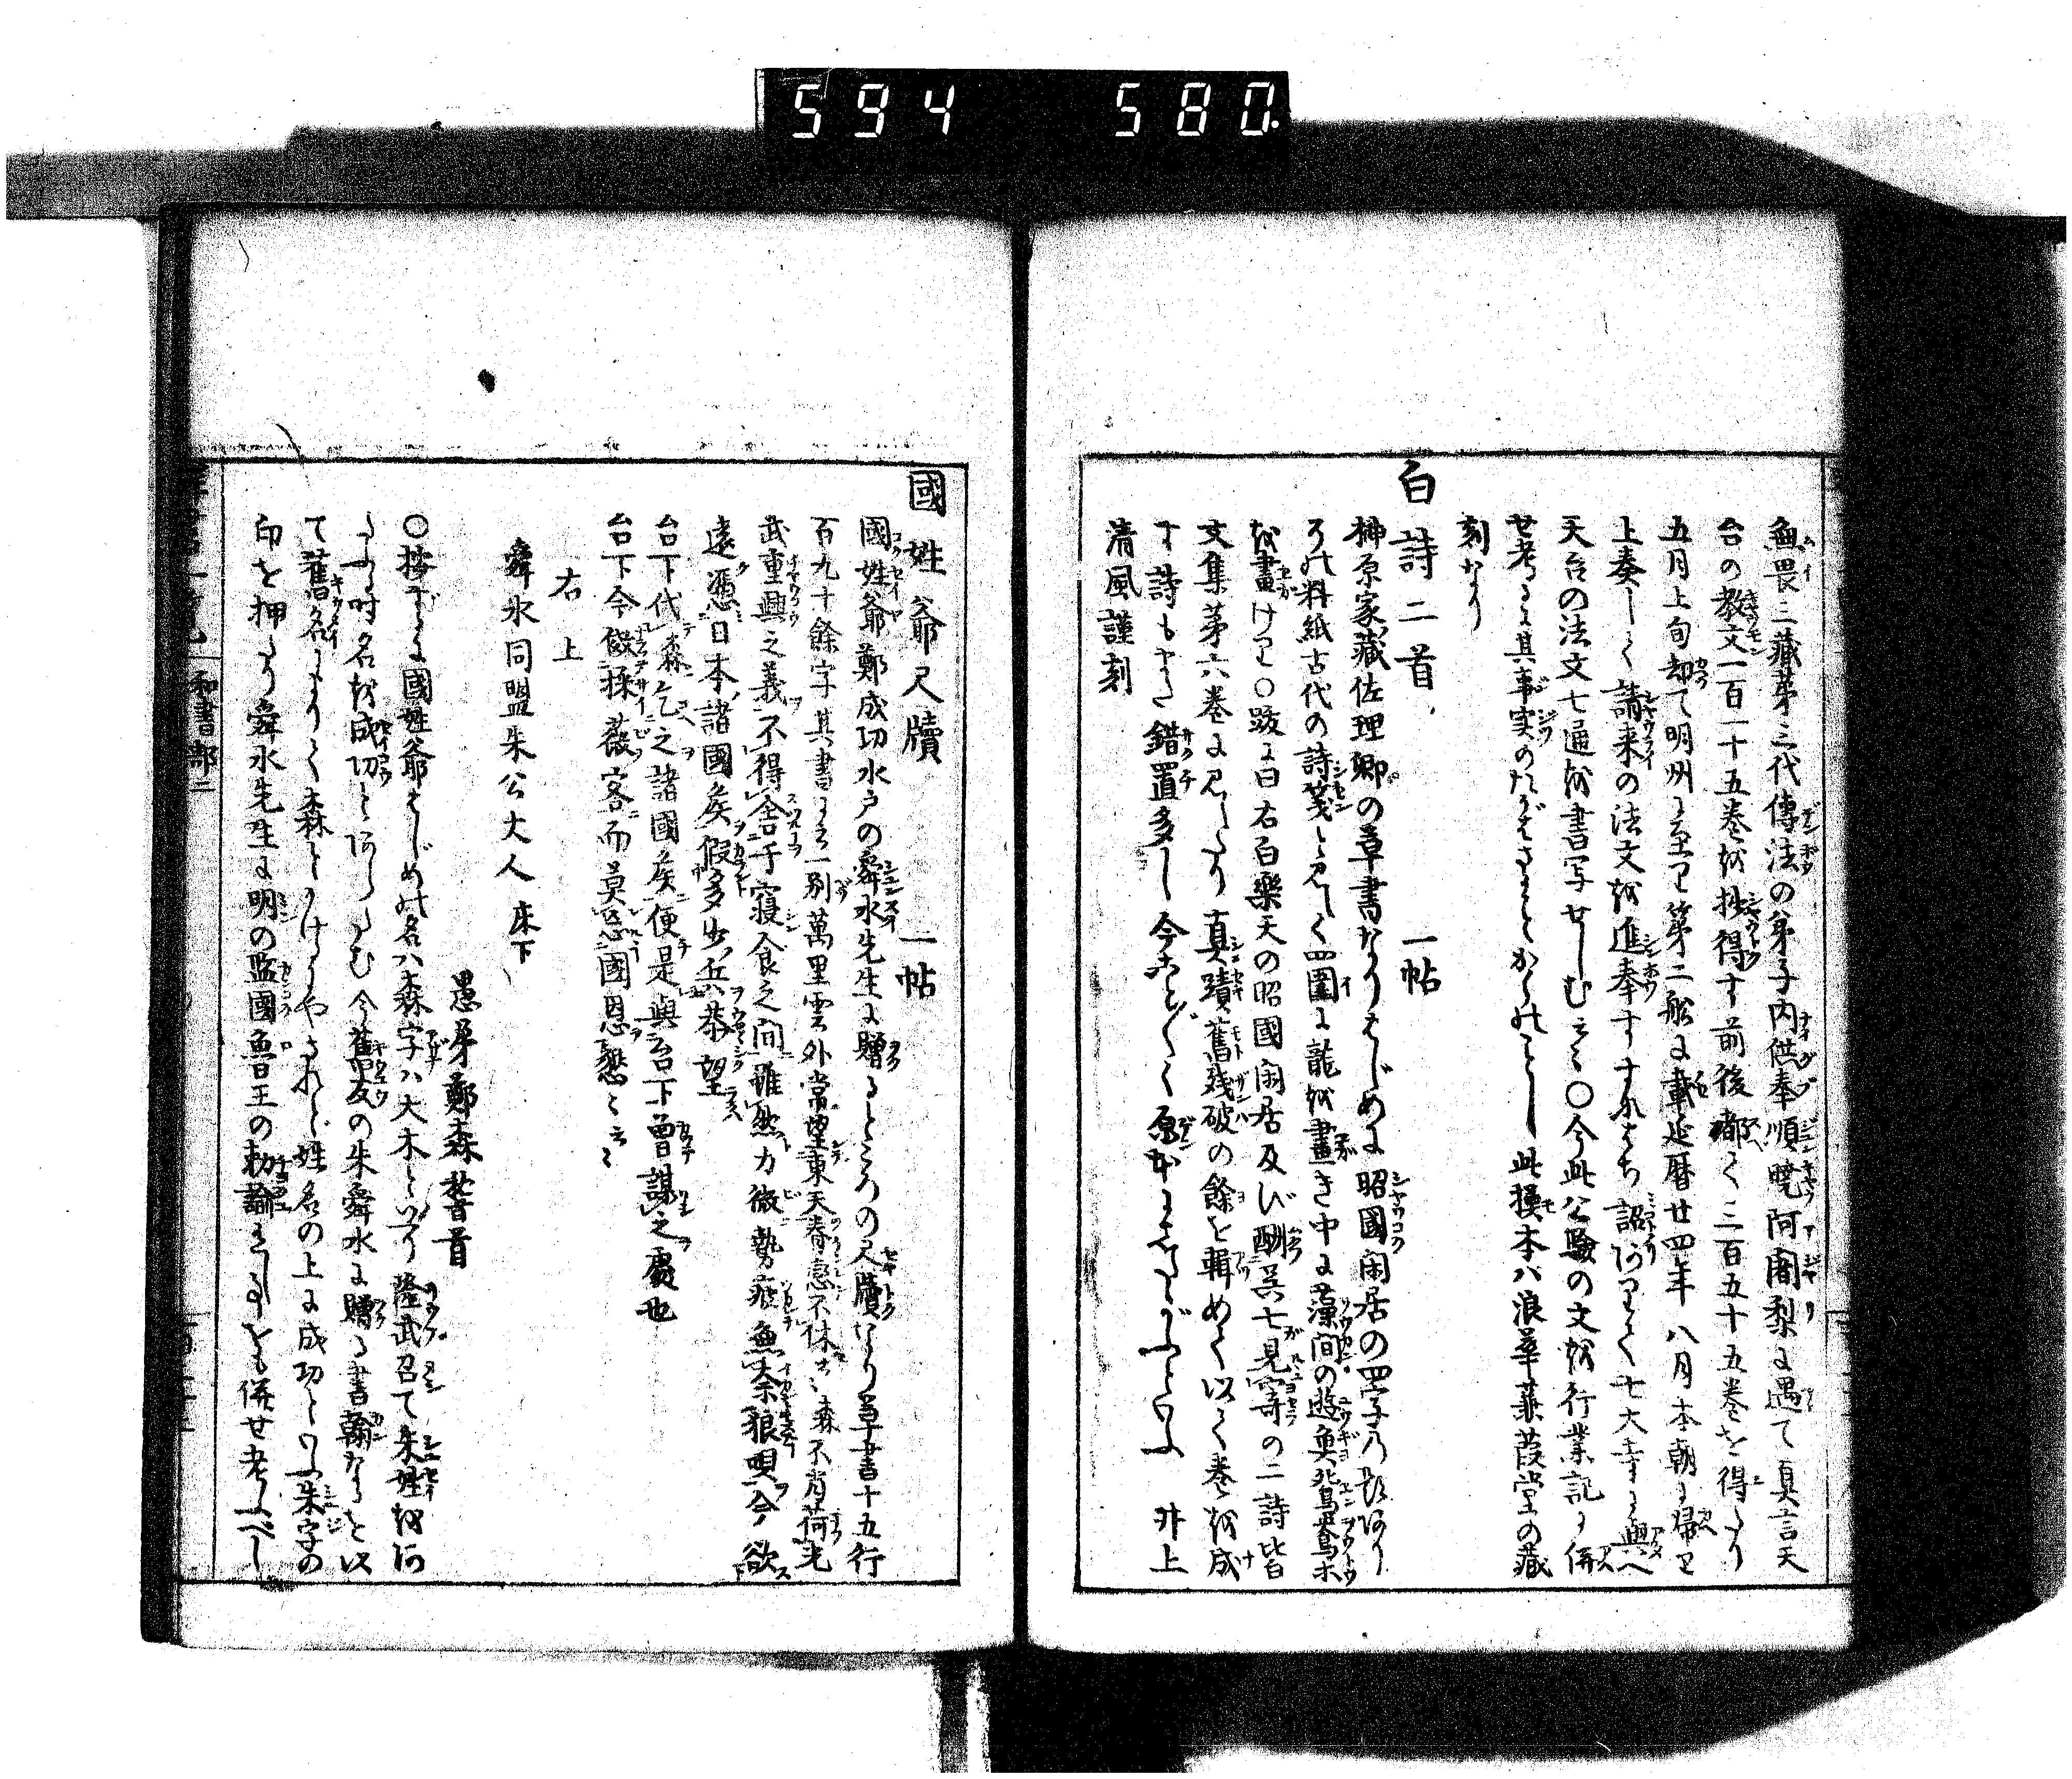 594 580.
無畏三藏第三代傳法の弟子内供奉順曉阿闍梨に遇て真言天
台の教文一百一十五巻を抄得す前後都て三百五十五巻を得たり
五月上旬却て明州に至り第二舩に載延暦廿四年八月本朝に帰り
上奏して請来の法文を進奉すすなはち詔ありて七大寺に與へ
天台の法文七通を書写せしむ云云〇今此公驗の文を行業記に併
せ考るに其事実のたがはざること
此摸本ハ浪華蒹葭堂の藏
刻なり
白詩二首 一帖
榊原家藏佐理卿の草書なりはじめに昭國闲居の四字
料紙古代の詩箋と見へて四圍に龍を畫き中に藻間の遊魚鴛鴦
を畫けり〇跋に曰右白樂天の昭國闲居及び酬吴七見寄の二詩皆
文集第六巻に見へたり真蹟舊残破の餘を輯めて以て巻を成
す詩もまた錯置多し今
井上
清風謹刻
國姓爺尺牘 一帖
國姓爺鄭成功水戸の舜水先生に贈るところの尺牘なり草書十五行
百九十餘字其書に云一別萬里雲外常望東天眷戀不休云云森不肖荷光
武重興之義不得舎于寝食之間雖然力微勢疲無奈狼唄今欲
遠憑日本諸國矦假多少兵恭望
台下代森乞之諸國矦便是與台下曽謀之處也
台下今俶採薇客而莫忘國恩懇懇云云
右上
舜水同盟朱公大人床下
愚弟鄭森㪽首
〇按ずるに國姓爺はじめの名ハ森字ハ大木といへり隆武召て朱姓を
時名を成功とあらたむ今舊友の朱舜水に贈る書翰なるを以
て舊名によりて森とかけるやされど姓名の上に成功といふ朱字の
印を押たり舜水先生に明の監國魯王の勅諭ありし事をも併せ考ふべし
和書部二